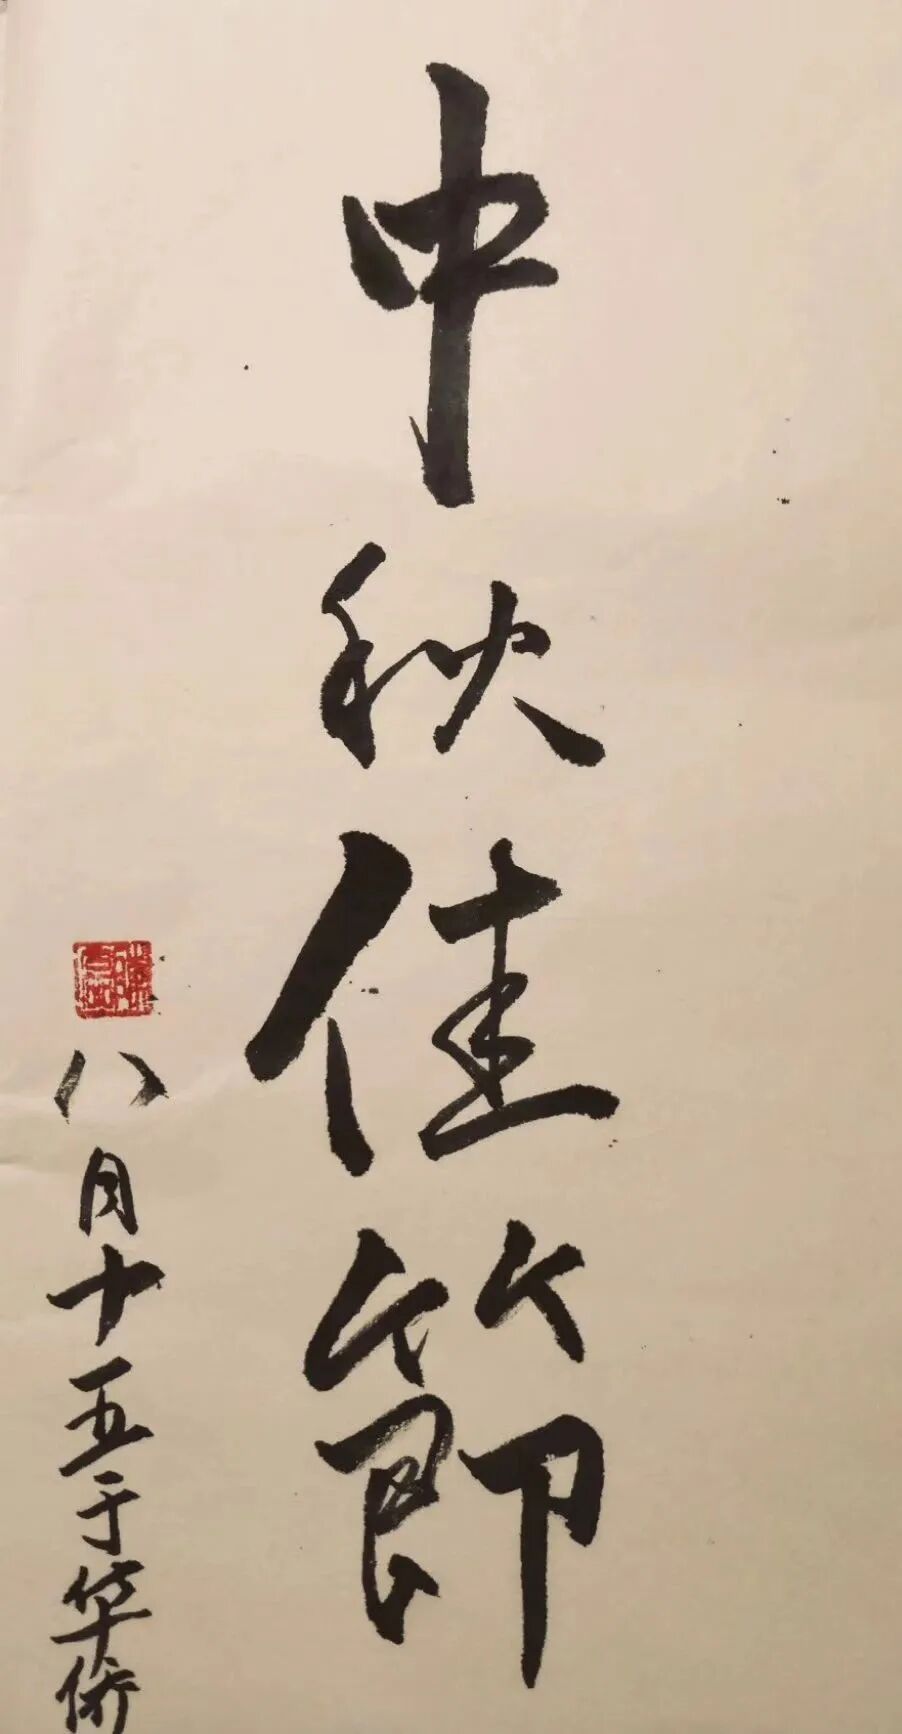 中秋佳節
八月十五于华侨